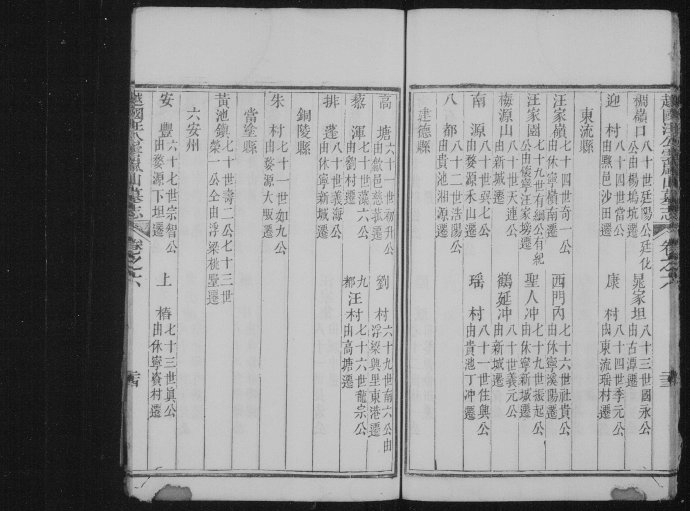 越國汪公 山墓志 卷之六 二十三
桐嶺口 八十世廷陽公廷化公由楊塢坑遷 晁家坦 八十三世國永公由古潭遷
迎村 八十四世當公由黟邑沙田遷 康村 八十四世季元公由東流瑶村遷
東流縣
汪家嶺 七十四世奇一公由休寧嶺南遷 西門內 七十六世社貴公由休寧溪陽遷
汪家園 七十九世有綱公有紀公由休寧汪家塝遷 聖人冲 七十九世振起公由休寧新城遷
梅源山 八十世天連公由新城遷 鶴延冲 八十世義元公由新城遷
南源 八十世與七公由婺源禾山遷 瑶村 八十一世住興公由貴池丁冲遷
八都 八十二世浩陽公由貴池湘源遷
建德縣
高塘 六十一世初升公由歙邑慈菰遷 劉村 六十九世南六公由浮梁興里東港遷
藜渾 七十世藻六公由劉村遷 九都汪村 七十六世龍宗公由高塘遷
排蓬 八十世義海公由休寧新城遷
銅陵縣
朱村 七十一世如九公由婺源大畈遷
當塗縣
黃池鎮 七十世壽二公七十三世榮一公仝由浮梁桃墅遷
六安州
安豐 六十七世宗智公由婺源下坦遷 上椿 七十三世真公由休寧資村遷
越國汪公 山墓志 卷之六 二十四